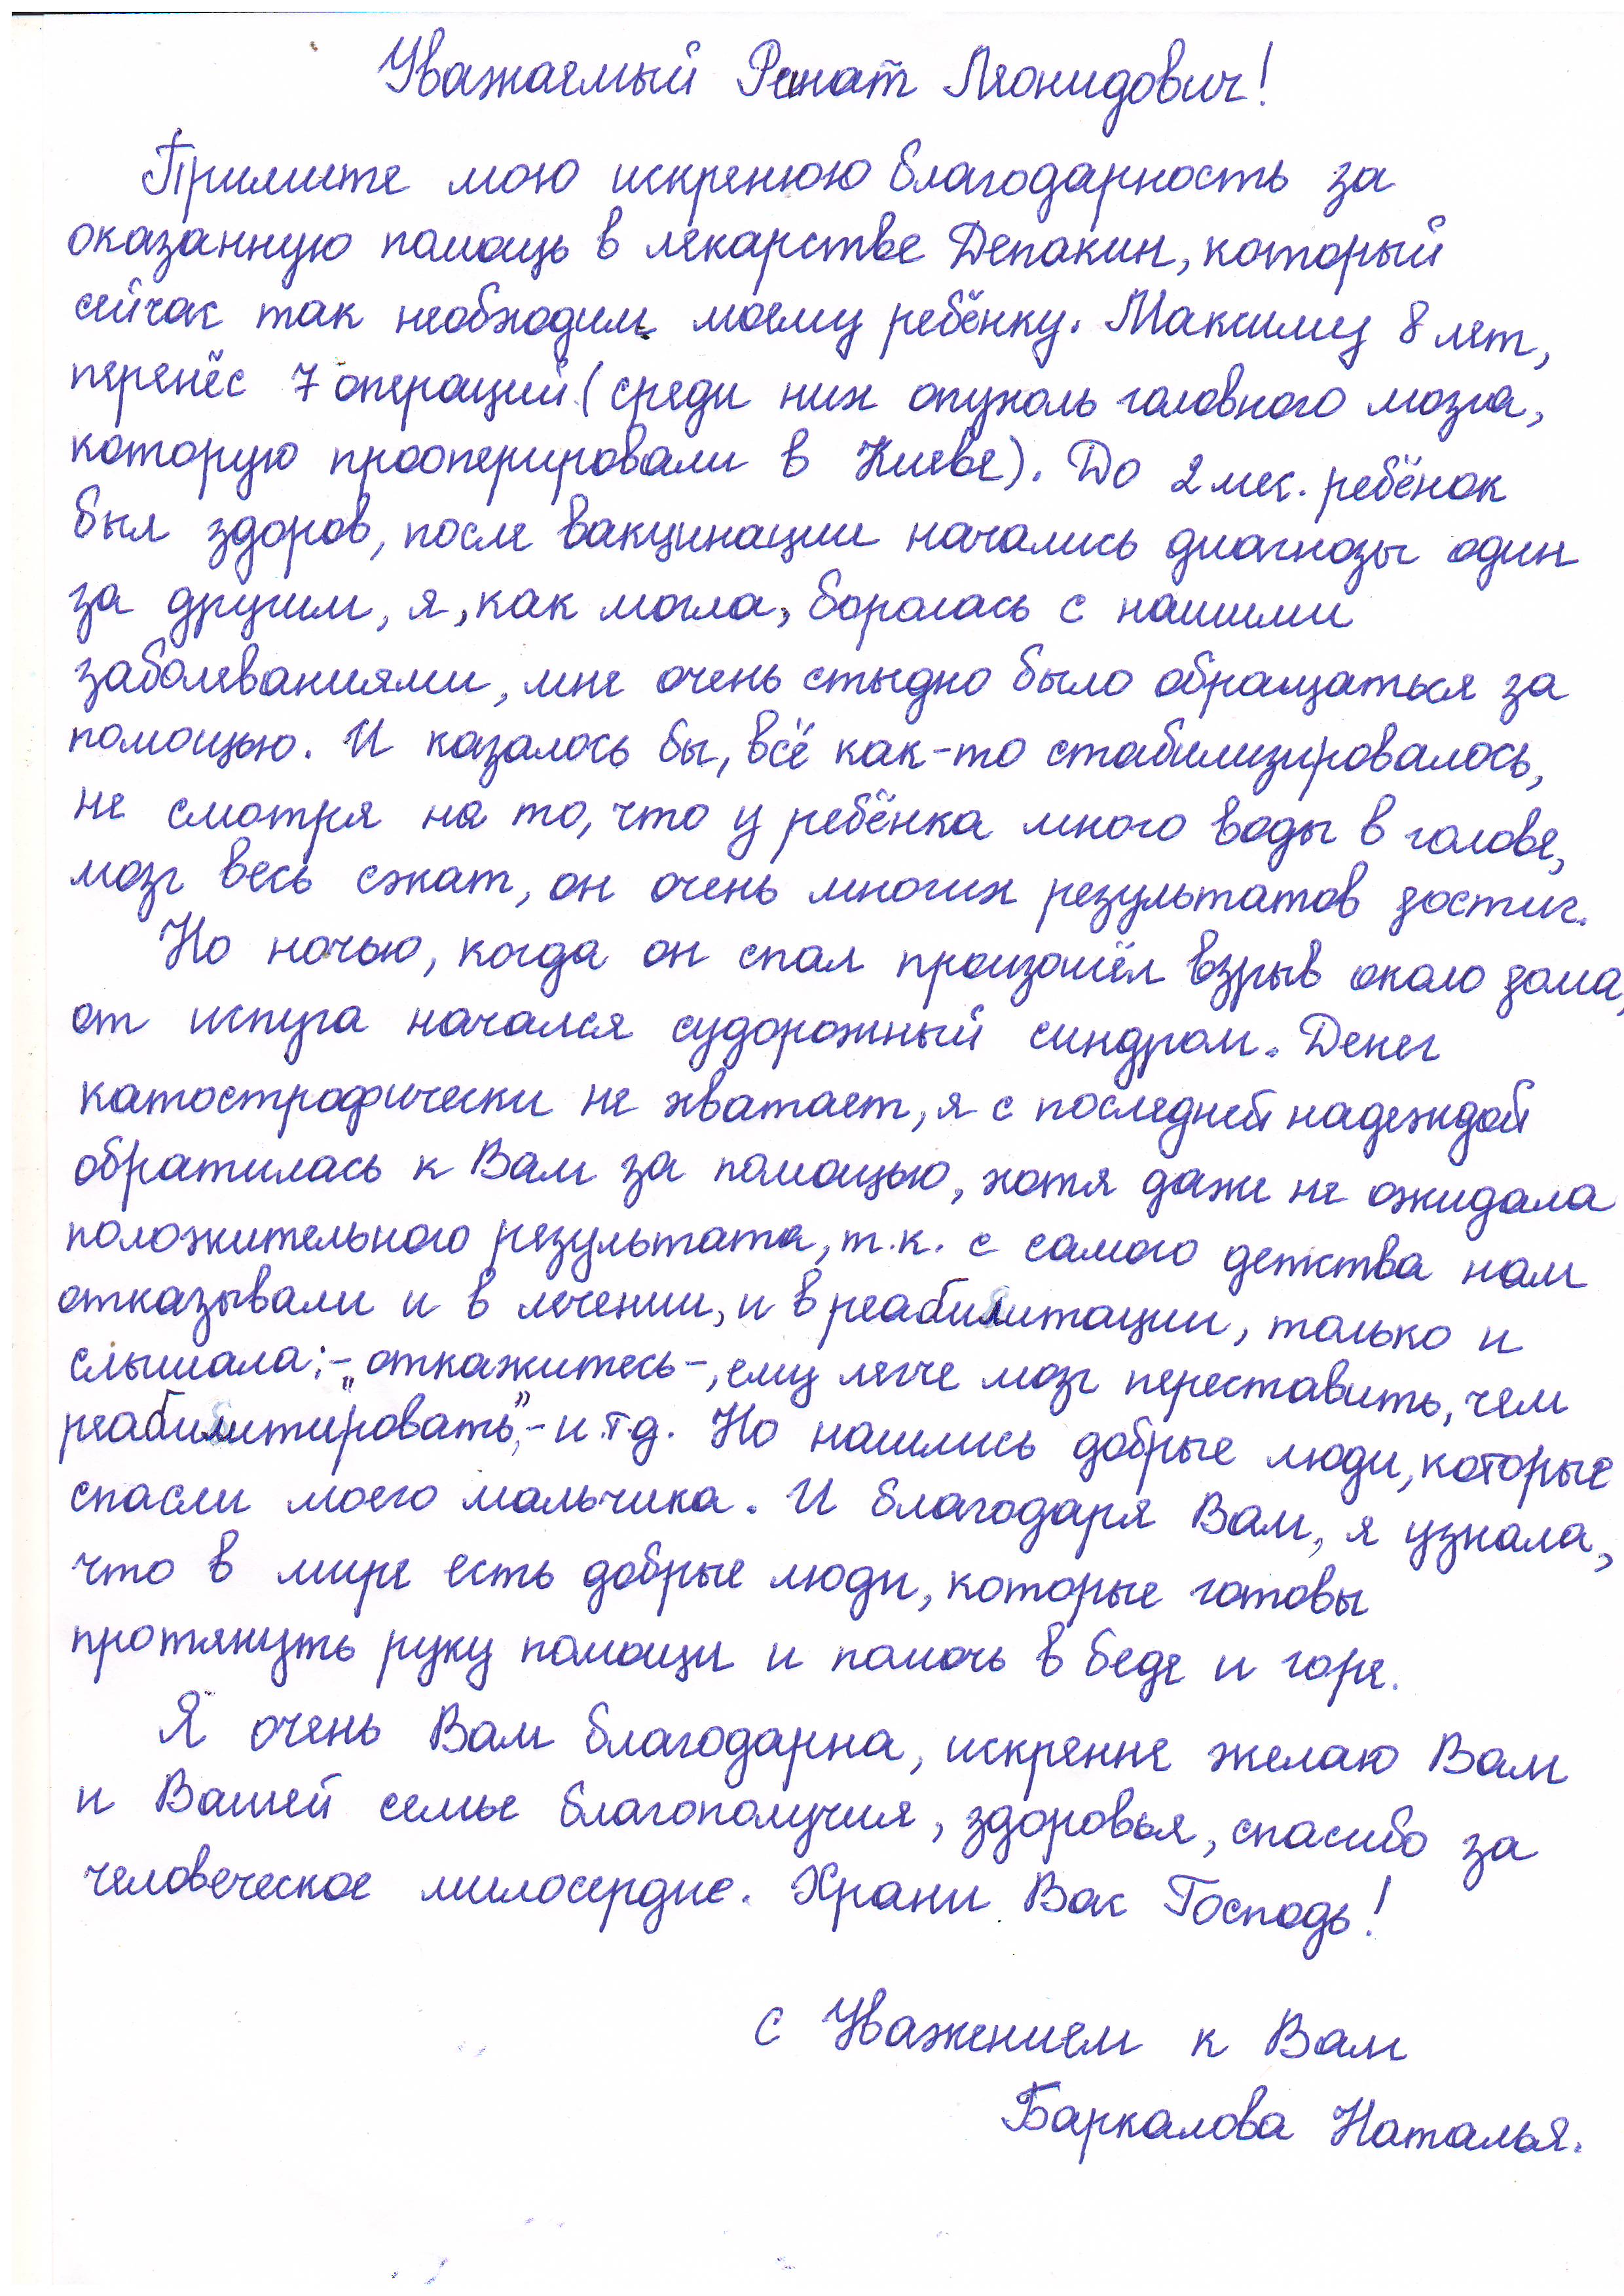 Уважаемый Ренат Леонидович!
Примите мою искренюю благодарность за
оказанную помощь в лекарстве Депакин, который
сейчас так необходим моему ребёнку. Максиму 8 лет,
перенёс 7 операций (среди них опухоль головного мозга,
которую прооперировали в Киеве). До 2 мес. ребёнок
был здоров, после вакцинации начались диагнозы один
за другим, я, как могла, боролась с нашими
заболеваниями, мне очень стыдно было обращаться за
помощью. И казалось бы, всё как-то стабилизировалось,
не смотря на то, что у ребёнка много воды в голове,
мозг весь сжат, он очень многих результатов достиг.
Но ночью, когда он спал произошёл взрыв около дома,
от испуга начался судорожный синдром. Денег
катострофически не хватает, я с последней надеждой
обратилась к Вам за помощью, хотя даже не ожидала
положительного результата, т.к. с самого детства нам
отказывали и в лечении, и в реабилитации, только и
слышала:-„откажитесь-, ему легче мозг переставить, чем
реабилитировать",- и.т.д. Но нашлись добрые люди, которые
спасли моего мальчика. И благодаря Вам, я узнала,
что в мире есть добрые люди, которые готовы
протянуть руку помощи и помочь в беде и горе.
Я очень Вам благодарна, искренне желаю Вам
и Вашей семье благополучия, здоровья, спасибо за
человеческое милосердие. Храни Вас Господь!
с Уважением к Вам
Баркалова Наталья.